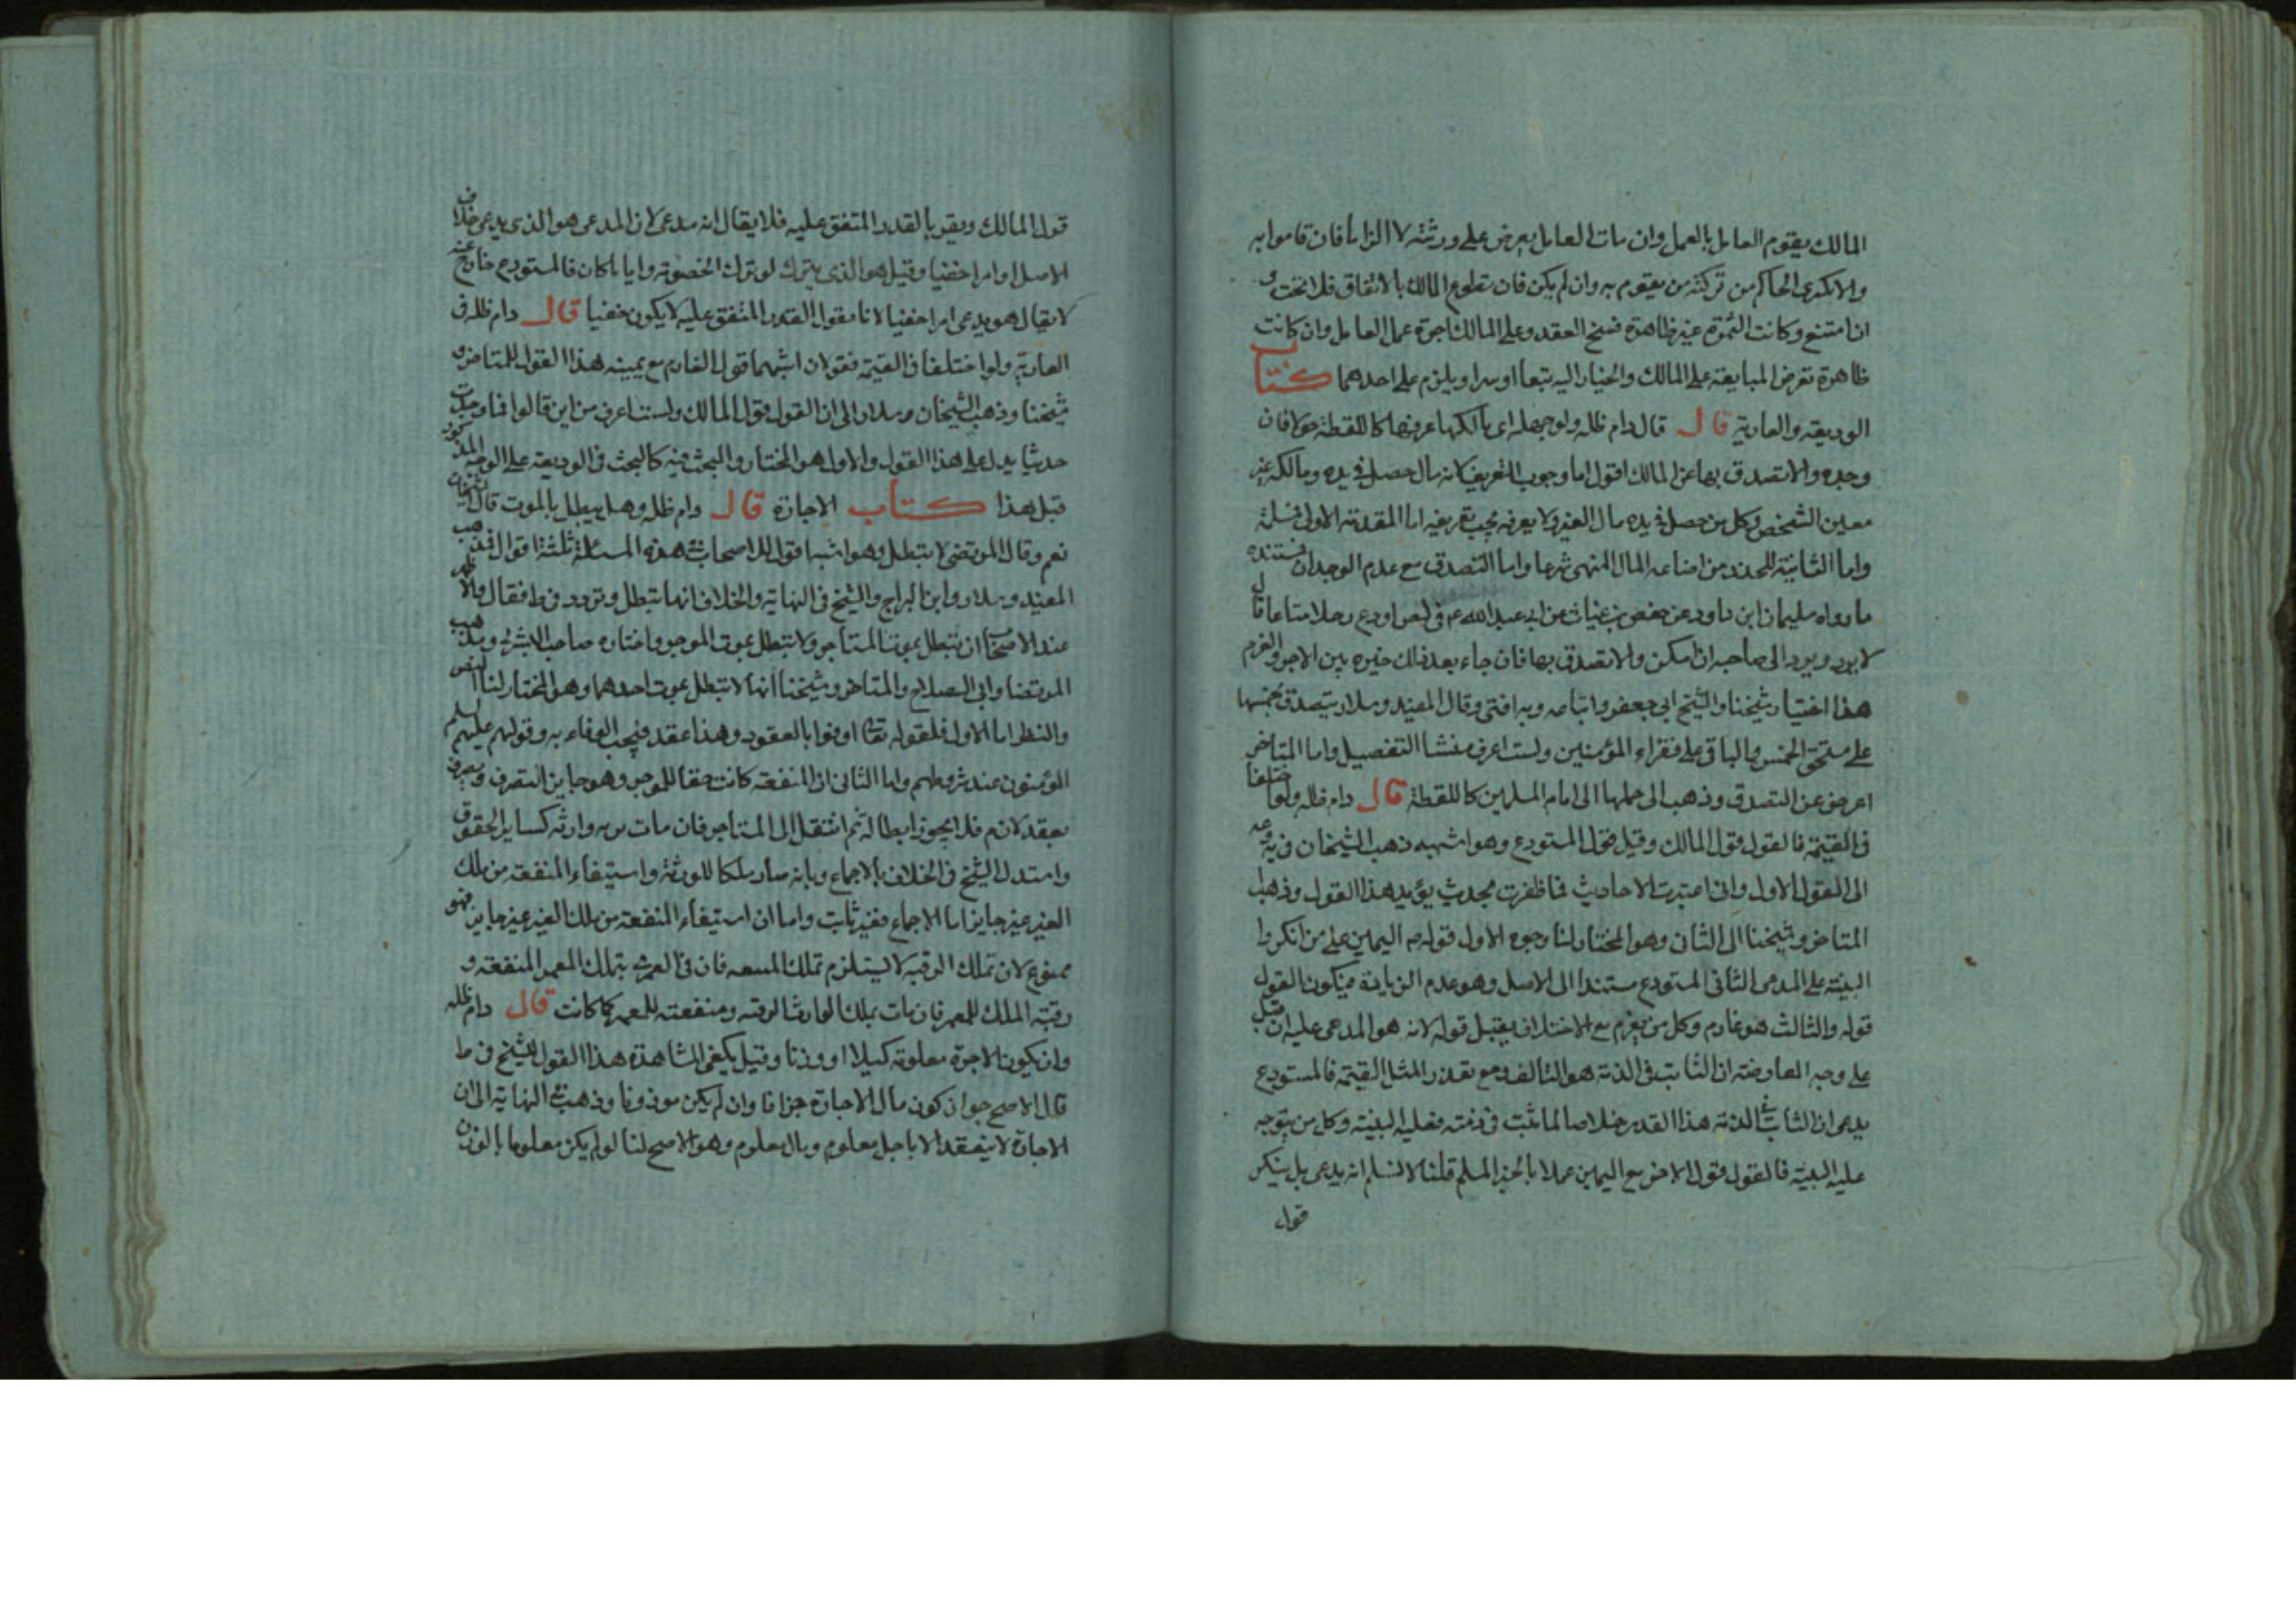 المالك يقوم العامل بالعمل وان مات العامل يعرض على ورثته لا الزاما فان قاموا به
والا اكترى الحاكم من تركته من يقوم به وان لم يكن فان تطوع المالك بالانفاق فلا بحث و
ان امتنع وكانت الثمرة غير ظاهرة فسخ العقد وعلى المالك اجرة عمل العامل وان كانت
ظاهرة تعرض المبايعة على المالك والخيار اليه ويلزم على احدهما كتاب
الوديعة والعارية قال قال دام ظله ولو جهله اى مالكها عرفها كاللقطة حولا فان
وجده والا تصدق بها عن المالك اقول اما وجوب التعريف لانه مال حصل فى يده ومالكه غير
معلن الشخص وكل من حصل فى يده مال الغير ولا يعرفه يجب تعريفه اما المقدمة الاولى فمسلمة
واما الثانية للحذر من اضاعة المال المنهى شرعا واما التصدق مع عدم الوجدان فمستنده
ما رواه سليمان ابن داود عن حفص بن غياث عن ابى عبد الله ع فى لص اودع رجلا متاعا قال
لا يرد ويرد الى صاحبه ان امكن والا تصدق بها فان جاء بعد ذلك خيره بين الاجر والغرم
هذا اختيار شيخنا والشيخ ابى جعفر واتباعه وبه افتى وقال المفيد وسلار يتصدق بخمسها
على مستحق الخمس والباقى على فقراء المؤمنين ولست اعرف منشا التفصيل واما المتاخر
اعرض عن التصدق وذهب الى حملها الى امام المسلمين كاللقطة قال دام ظله ولو اختلفا
فى القيمة فالقول قول المالك وقيل قول المستودع وهو اشبه ذهب الشيخان فى يه وعه
الى القول الاول وانى اعتبرت الاحاديث فما ظفرت بحديث يؤيد هذا القول وذهب
المتاخر وشيخنا الى الثانى وهو المختار لنا وجوه الاول قوله ص اليمين على من انكر وا
البينة على المدعى الثانى المستودع مستندا الى الاصل وهو عدم الزيادة فيكون القول
قوله والثالث هو غارم وكل من يغرم مع الاختلاف يقبل قوله لانه هو المدعى عليه ان قيل
على وجه المعارضة ان الثابت فى الذمة هو التالف ومع تعذر المثل القيمة فالمستودع
يدعى ان الثابت فى الذمة هذا القدر خلاصا لما ثبت فى ذمته فعليه البينة وكل من يتوجه
عليه البينة فالقول قول الاخر مع اليمين عملا بالخبر المسلم قلنا لا نسلم انه يدعى بل ينكر
قول
قول المالك ويقر بالقدر المتفق عليه فلا يقال انه مدعى لان المدعى هو الذى يدعى خلاف
الاصل او امرا خفيا وقيل هو الذى يترك لو ترك الخصومة وايا ما كان فالمستودع خارج عنه
لا يقال هو يدعى امرا خفيا لانا نقول القدر المتفق عليه لا يكون خفيا قال دام ظله فى
العارية ولو اختلفا فى القيمة فقولان اشبههما قول الغارم مع يمينه هذا القول للمتاخر و
شيخنا وذهب الشيخان وسلار الى ان القول قول المالك ولست اعرف من اين قالوا فما وجدت
حديثا يدل على هذا القول والاول هو المختار والبحث فيه كالبحث فى الوديعة على الوجه المذكور
قبل هذا كتاب الاجارة قال دام ظله وهل يبطل بالموت قال الشيخان
نعم وقال المرتضى لا تبطل وهو اشبه اقول للاصحاب فى هذه المسئلة ثلثة اقوال فذهب
المفيد وسلار وابن البراج والشيخ فى النهاية والخلاف انها تبطل وتردد فى ط فقال والاظهر
عند الاصحاب ان تبطل بموت المستأجر ولا تبطل بموت الموجر واختاره صاحب البشرى ومذهب
المرتضى وابى الصلاح والمتاخر وشيخنا انها لا تبطل بموت احدهما وهو المختار لنا النص
والنظر اما الاول فلقوله تعالى اوفوا بالعقود وهذا عقد فيجب الوفاء به وقولهم عليهم السلم
المؤمنون عند شروطهم واما الثانى ان المنفعة كانت حقا للموجر وهو جايز التصرف وتصرف
بعقد لازم فلا يجوز ابطاله ثم انتقل الى المستأجر فان مات يرثه وارثه كساير الحقوق
واستدل الشيخ فى الخلاف بالاجماع وبانه صار ملكا للورثة واستيفاء المنفعة من ملك
الغير غير جايز اما الاجماع فغير ثابت واما ان استيفاء المنفعة من ملك الغير غير جايز فهو
ممنوع لان تملك الرقبة لا يستلزم تملك المنفعه فان فى العمرى يتملك المعمر المنفعة و
رقبة الملك للمعمر فان مات يملك الوارث الرقبة ومنفعته للمعمر كما كانت قال دام ظله
وان يكون الاجرة معلومة كيلا او وزنا وقيل يكفى المشاهدة هذا القول للشيخ فى ط
قال الاصح جواز كون مال الاجارة جزافا وان لم يكن موزونا وذهب فى النهاية الى ان
الاجارة لا ينعقد الا باجل معلوم ومال معلوم وهو الاصح لنا لو لم يكن معلوما بالوزن